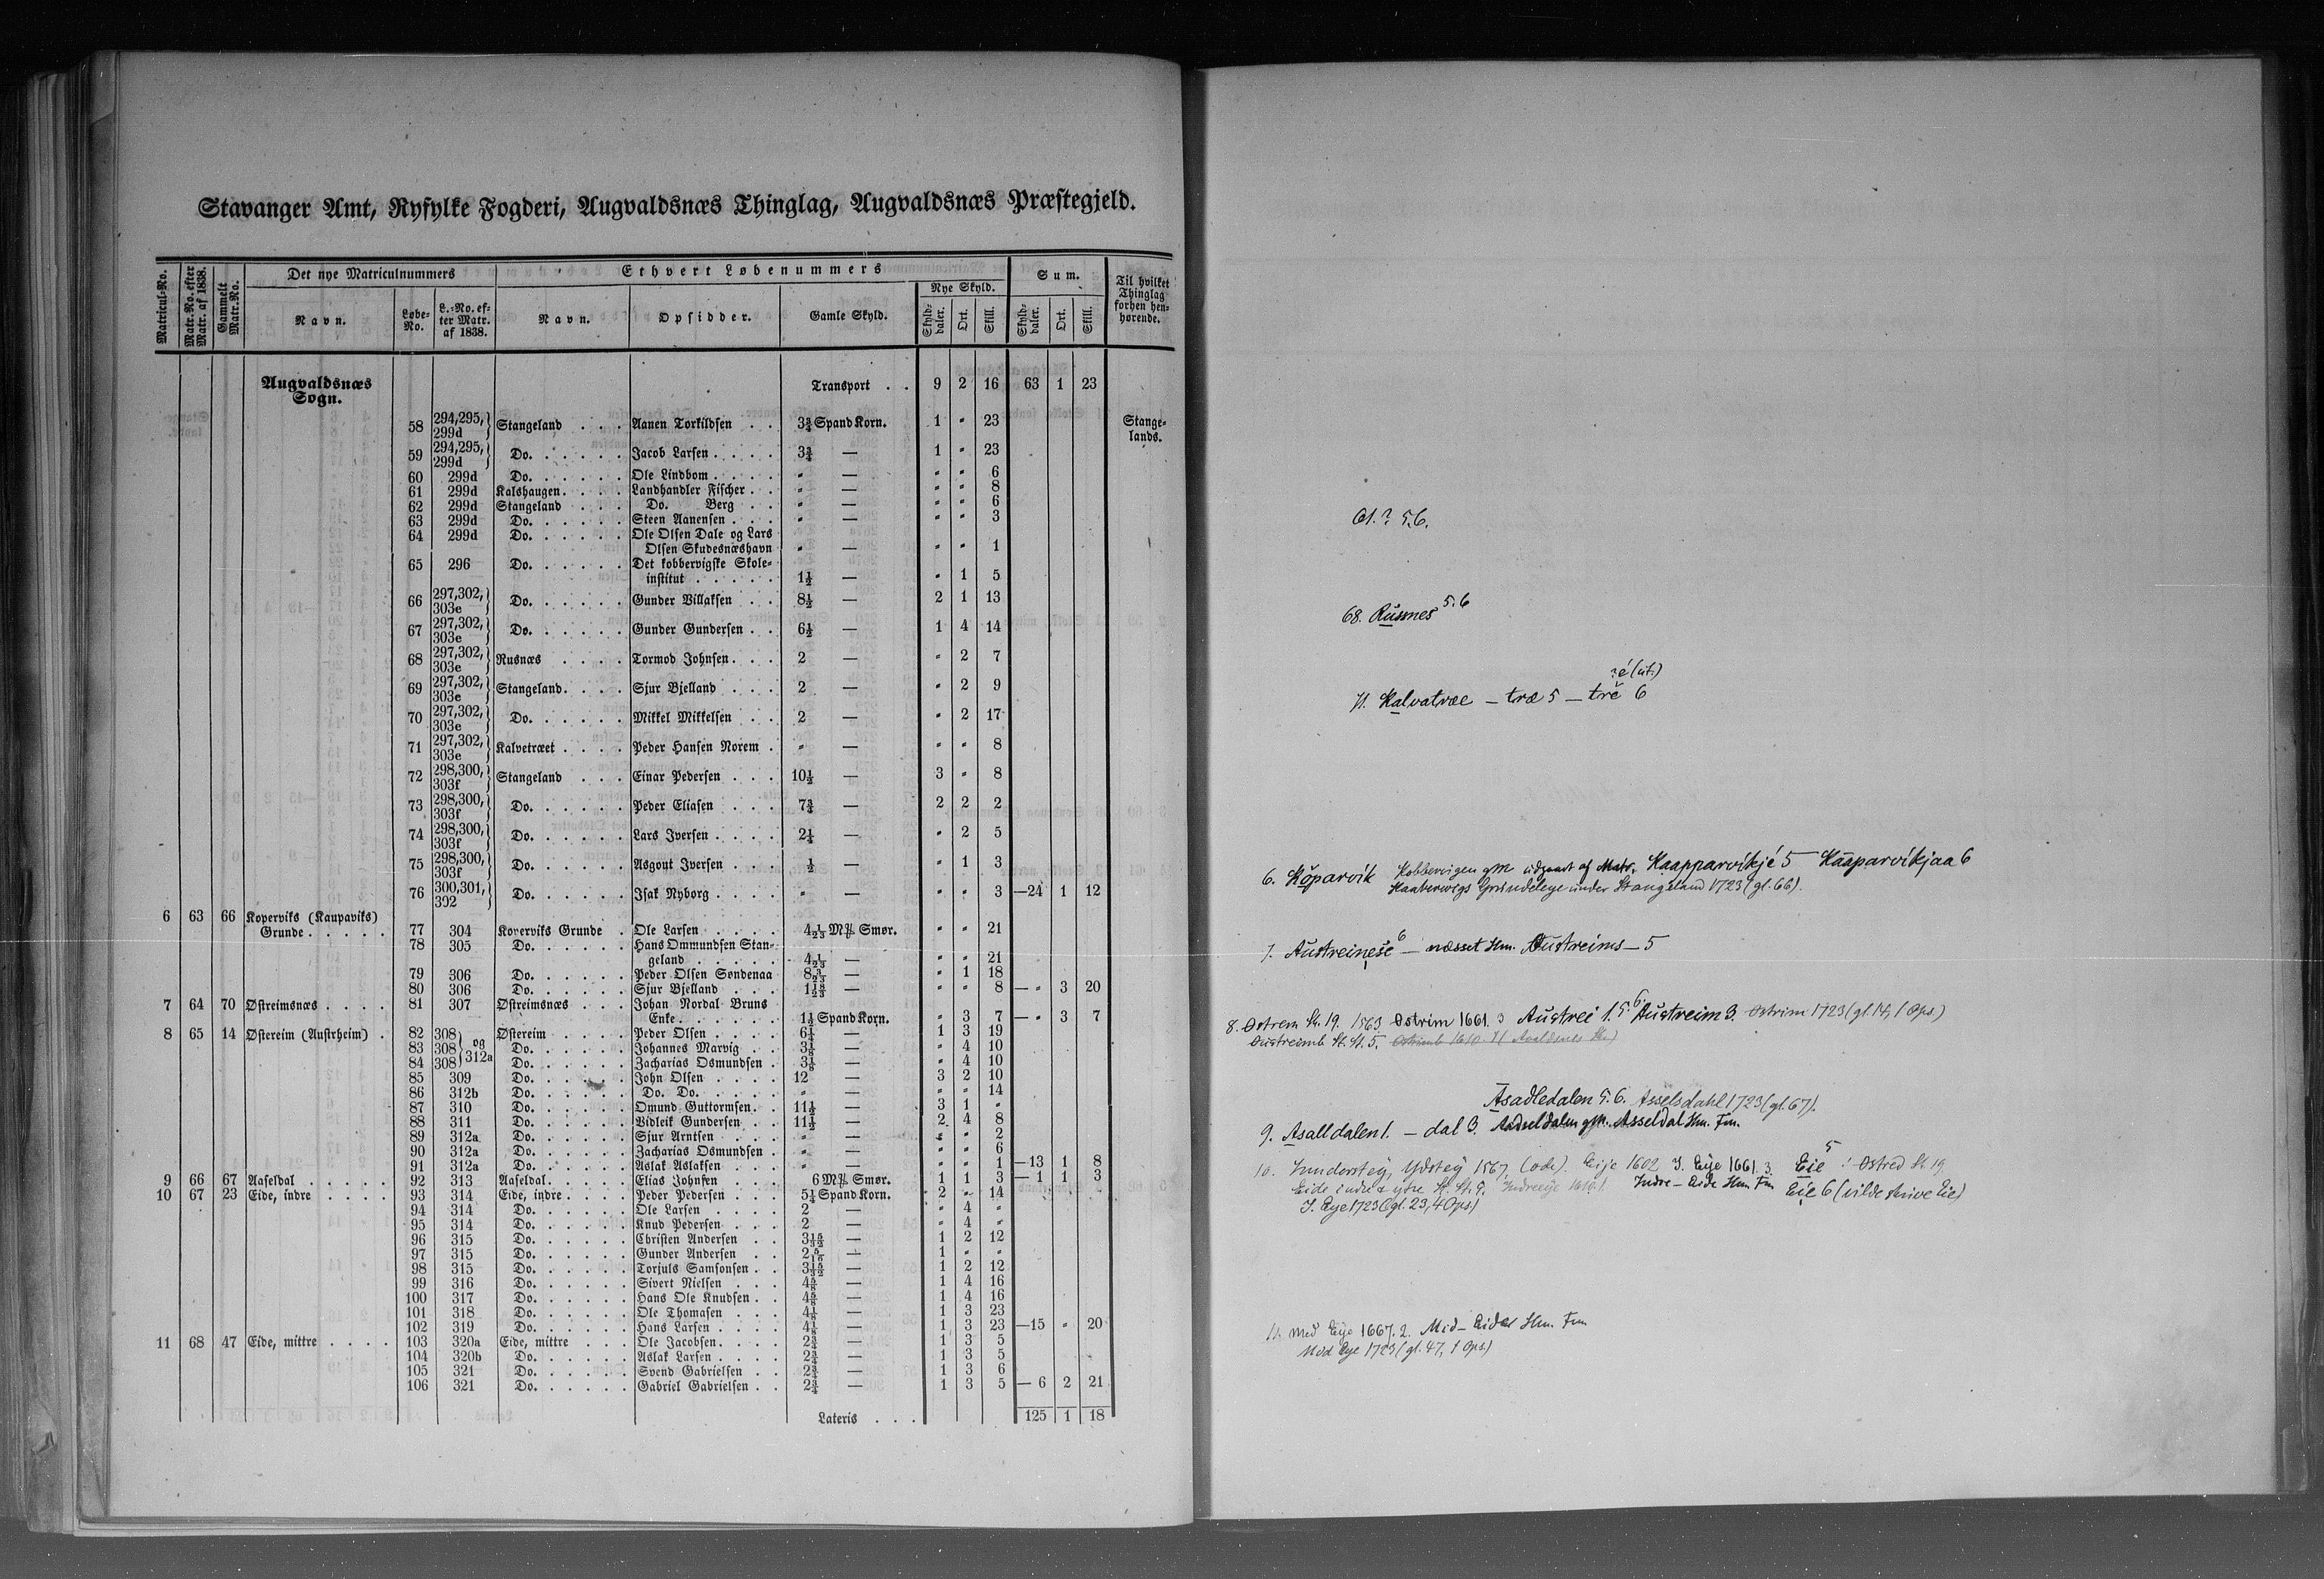 Stavanger Amt, Ryfylke Fogderi, Augvaldsnæs Thinglag, Augvaldsnæs Præstegjeld.
Matricul-No. Matr. No. efter Matr. af 1838. Gammelt Matr. No. Det nye Matriculnummers Ethvert Løbenummers Sum. Til hvilket Thinglag forhen henhørende.
Navn. Løbe-No. L.-No. efter Matr. af 1838. Navn. Opsidder. Gamle Skyld. Nye Skyld. Skylddaler. Ort. Skill. Skylddaler. Ort. Skill.
Augvaldsnæs Sogn. Transport . . 9 2 16 63 1 23
58 294,295, 299d Stangeland . . . Aanen Torkildsen . . 3¾ Spand Korn. 1 " 23 Stangelands.
59 294,295, 299d Do. . . . . . Jacob Larsen . . . . 3¾ — 1 " 23
60 299d Do. . . . . . Ole Lindbom . . . . " — " " 6
61 299d Kalshaugen . . . . Landhandler Fischer . . " — " " 8
62 299d Stangeland . . . Do. Berg . . " — " " 6
63 299d Do. . . . . . Steen Aanensen . . . " — " " 3
64 299d Do. . . . . . Ole Olsen Dale og Lars
Olsen Skudesnæshavn " — " " 1
65 296 Do. . . . . . Det kobbervigske Skole-
institut . . . . . 1½ — " 1 5
66 297,302, 303e Do. . . . . . Gunder Villaksen . . 8½ — 2 1 13
67 297,302, 303e Do. . . . . . Gunder Gundersen . . 6½ — 1 4 14
68 297,302, 303e Rusnæs . . . . Tormod Johnsen . . . 2 — " 2 7
69 297,302, 303e Stangeland . . . . Sjur Bjelland . . . 2 — " 2 9
70 297,302, 303e Do. . . . . . Mikkel Mikkelsen . . 2 — " 2 17
71 297,302, 303e Kalvetræet . . . . Peder Hansen Norem . " — " " 8
72 298,300, 303f Stangeland . . . Einar Pedersen . . . 10½ — 3 " 8
73 298,300, 303f Do. . . . . . Peder Eliasen . . . 7¾ — 2 2 2
74 298,300, 303f Do. . . . . . Lars Iversen . . . . 2¼ — " 2 5
75 298,300, 303f Do. . . . . . Asgout Iversen . . . ½ — " 1 3
76 300,301, 392 Do. . . . . . Isak Nyborg . . . . " — " " 3 —24 1 12
6 63 66 Koperviks (Kaupaviks)
Grunde . . . . . 77 304 Koperviks Grunde . Ole Larsen . . . . 4 1/23 M℔ Smør. " " 21
78 305 Do. . . . . . Hans Ommundsen Stan-
geland . . . . . 4 1/23 — " " 21
79 306 Do. . . . . . Peder Olsen Søndenaa 8 3/23 — " 1 18
80 306 Do. . . . . . Sjur Bjelland . . . 1 18/23 — " " 8 — " 3 20
7 64 70 Østreimsnæs . . . . 81 307 Østreimsnæs . . . Johan Nordal Bruns
Enke . . . . . . 1½ Spand Korn. " 3 7 — " 3 7
8 65 14 Østereim (Austrheim) . 82 308 Østereim . . . . Peder Olsen . . . . 6¼ — 1 3 19
83 308 og 312a Do. . . . . . Johannes Marvig . . 3⅛ — " 4 10
84 308 Do. . . . . . Zacharias Osmundsen . 3⅛ — " 4 10
85 309 Do. . . . . . John Olsen . . . . 12 — 3 2 10
86 312b Do. . . . . . Do. Do. . . . . " — " " 14
87 310 Do. . . . . . Omund Guttormsen . . 11½ — 3 1 "
88 311 Do. . . . . . Vidleik Gundersen . . 11½ — 2 4 8
89 312a Do. . . . . . Sjur Arntsen . . . " — " " 2
90 312a Do. . . . . . Zacharias Osmundsen . " — " " 6
91 312a Do. . . . . . Aslak Aslaksen . . . " — " " 1 —13 1 8
9 66 67 Aaseldal . . . . . 92 313 Aaseldal . . . . . Elias Johnsen . . . 6 M℔ Smør. 1 1 3 — 1 1 3
10 67 23 Eide, indre . . . . 93 314 Eide, indre . . . . Peder Pedersen . . . 5¼ Spand Korn. 2 " 14
94 314 Do. . . . . . Ole Larsen . . . . 2 — " 4 "
95 314 Do. . . . . . Knud Pedersen . . . 2 — " 4 "
96 315 Do. . . . . . Christen Andersen . . 3 15/32 — 1 2 12
97 315 Do. . . . . . Gunder Andersen . . 2 5/16 — 1 " "
98 315 Do. . . . . . Torjuls Samsonsen . . 3 15/32 — 1 2 12
99 316 Do. . . . . . Sivert Nielsen . . . 4⅝ — 1 4 16
100 317 Do. . . . . . Hans Ole Knudsen . . 4⅝ — 1 4 16
101 318 Do. . . . . . Ole Thomasen . . . 4⅛ — 1 3 23
102 319 Do. . . . . . Hans Larsen . . . . 4⅛ — 1 3 23 —15 " 20
11 68 47 Eide, mittre . . . . 103 320a Eide, mittre . . . Ole Jacobsen . . . . 2¾ — 1 3 5
104 320b Do. . . . . . Aslak Larsen . . . . 2¾ — 1 3 5
105 321 Do. . . . . . Svend Gabrielsen . . 2¾ — 1 3 6
106 321 Do. . . . . . Gabriel Gabrielsen . . 2¾ — 1 3 5 — 6 2 21
Lateris . . . 125 1 18
61.? 5.6.
68. Rusnes 5.6
?é (ut.)
71. Kalvatræe – træ 5 – tre 6
6. Koparvik Kobbervigen gm udgaaet af Matr. Kaapparvikjé 5 Kaaparvikjaa 6
Kaaberwigs Grindeleye under Stangeland 1723 (gl. 66).
7. Austreinese 6 – næsset Hm. Austreims – 5
8. Ostrem St. 19. 1563 Ostrim 1661. 3 Austrei 1. 5. 6. Austreim 3. Østrim 1723 (gl. 14, 1 Ops.)
Austreimb St. St. 5.
Asadledalen 5. 6. Asselsdahl 1723 (gl. 67).
9. Asalldalen 1. – dal 3. Asseldal Hm. Fm.
10. Ydstey 1567, (øde). Eije 1602 I. Eije 1661. 3 Eie 5 Østred St. 19
Eide indre & ytre St. St. 9. Indre-Eide Hm. Fm Eie 6 (vilde skrive Eie)
I. Eye 1723 (gl. 23, 4 Ops.)
11. Med Eije 1667. 2. Mid-Eide Hm. Fm
Mid Eye 1723 (gl. 47, 1 Ops.)